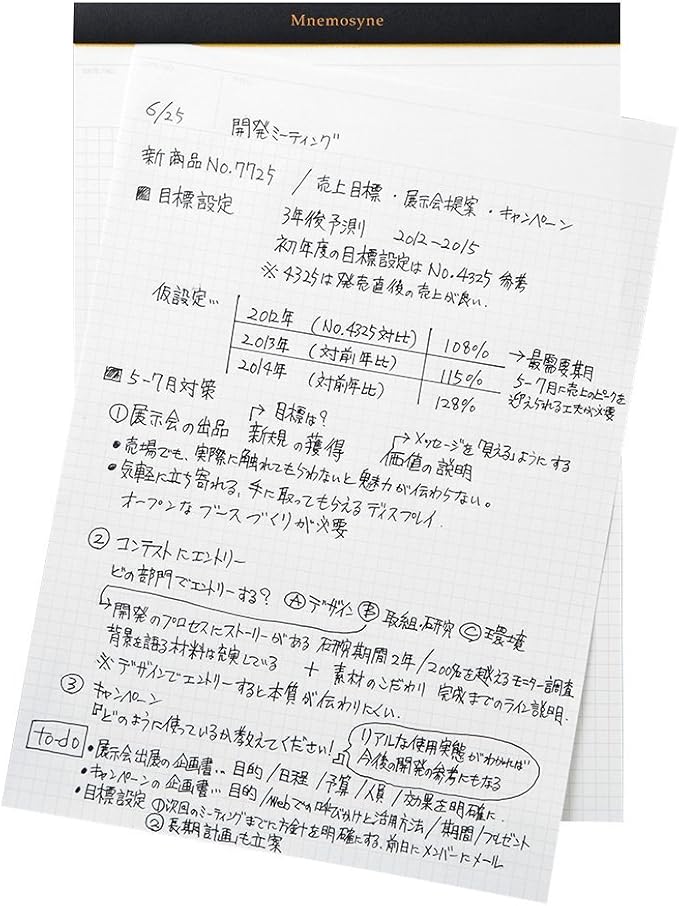 Mnemosyne
6/25 開発ミーティング
新商品No.7725 / 売上目標・展示会提案・キャンペーン
目標設定
3年後予測 2012-2015
初年度の目標設定はNo.4325 参考
※4325は発売直後の売上が良い.
仮設定…
2012年 (No.4325対比) 108%
2013年 (対前年比) 115%
2014年 (対前年比) 128%
→最需要期月
5-7月に売上のピークを
迎えられる工夫が必要
5-7月対策
①展示会の出品
→目標は?
新規の獲得
→メッセージを「見える」ようにする
価値の説明
•売場でも、実際に触れてもらわないと魅力が伝わらない。
•気軽に立ち寄れる、手に取ってもらえるディスプレイ.
オープンなブースづくりが必要
②コンテストにエントリー
どの部門でエントリーする? Ⓐデザイン Ⓑ取組・研究 Ⓒ環境
→開発のプロセスにストーリーがある 研究期間2年/200名を越えるモニター調査
背景を語る材料は充実している + 素材のこだわり 完成までのライン説明.
※デザインでエントリーすると本質が伝わりにくい.
③キャンペーン
『どのように使っているか教えてください!』
リアルな使用実態がわかれば
今後の開発の参考にもなる
to-do
•展示会出展の企画書… 目的/日程/予算/人員/効果を明確に.
•キャンペーンの企画書… 目的/Webでの呼びかけと活用方法/期間/プレゼント
•目標設定 ①次回のミーティングまでに方針を明確にする、前日にメンバーにメール
②長期計画も立案